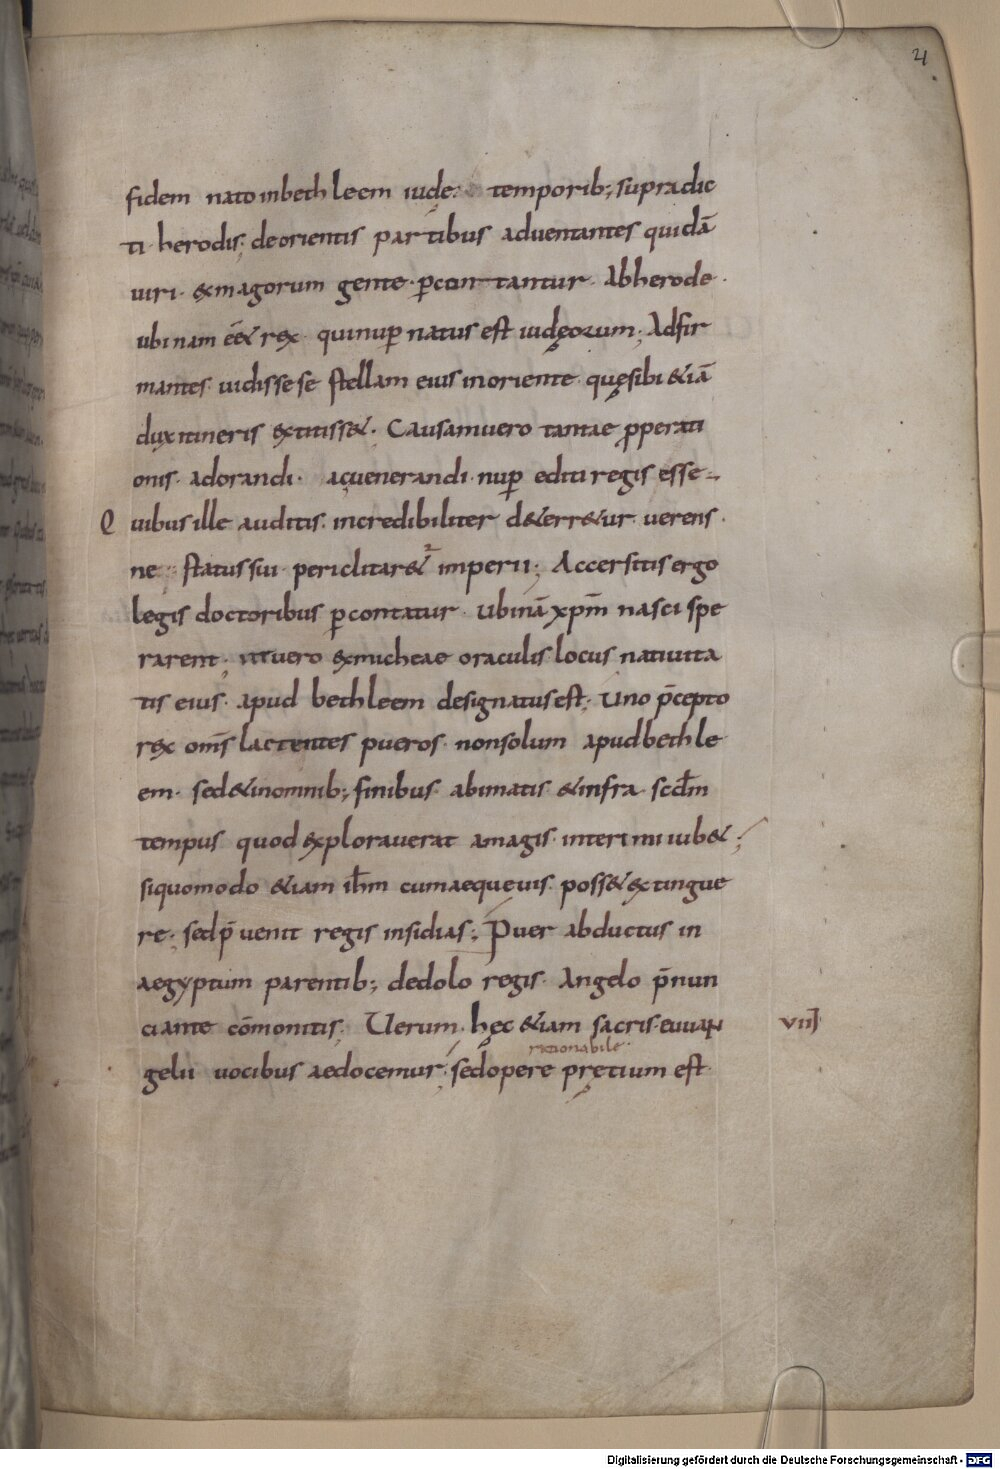 21
fidem nato inbethleem iudę. temporib; supradic
ti herodis; deorientis partibus aduentantes quidā
uiri. &magorum gente. ꝑcuntantur. Abherode.
ubinam eē& rex quinuꝑ natus est iudęorum; Adfir
mantes uidissese stellam eius inoriente quęsibi &iā
dux itineris extitiss&. Causamuero tantae ꝓperati
onis. adorandi. acuenerandi. nuꝑ editi regis esse
Quibus ille auditis. incredibiliter d&err&ur. uerens.
ne status sui periclitar& imperii; Accersitis ergo
legis doctoribus ꝑcontatur. Ubinā xp̄m nasci spe
rarent; utuero exmicheae oraculis locus natiuita
tis eius. apud bethleem designatus est; Uno p̄cepto
rex om̄s lactentes pueros. nonsolum apudbethle
em. sed&inomnib; finibus. abimatis &infra. scdm̄
tempus quod explorauerat amagis. interimi iub&;
siquomodo &iam ih̄m cumaequeuis. poss& extingue
re; sedp̄uenit regis insidias; Puer abductus in
aegyptum parentib; dedolo regis. Angelo p̄nun
ciante cōmonitis; Uerum. hęc &iam sacris. euuan
VII
gelii uocibus aedocemur; sedopere prętium est
rationabile
Digitalisierung gefördert durch die Deutsche Forschungsgemeinschaft - DFG